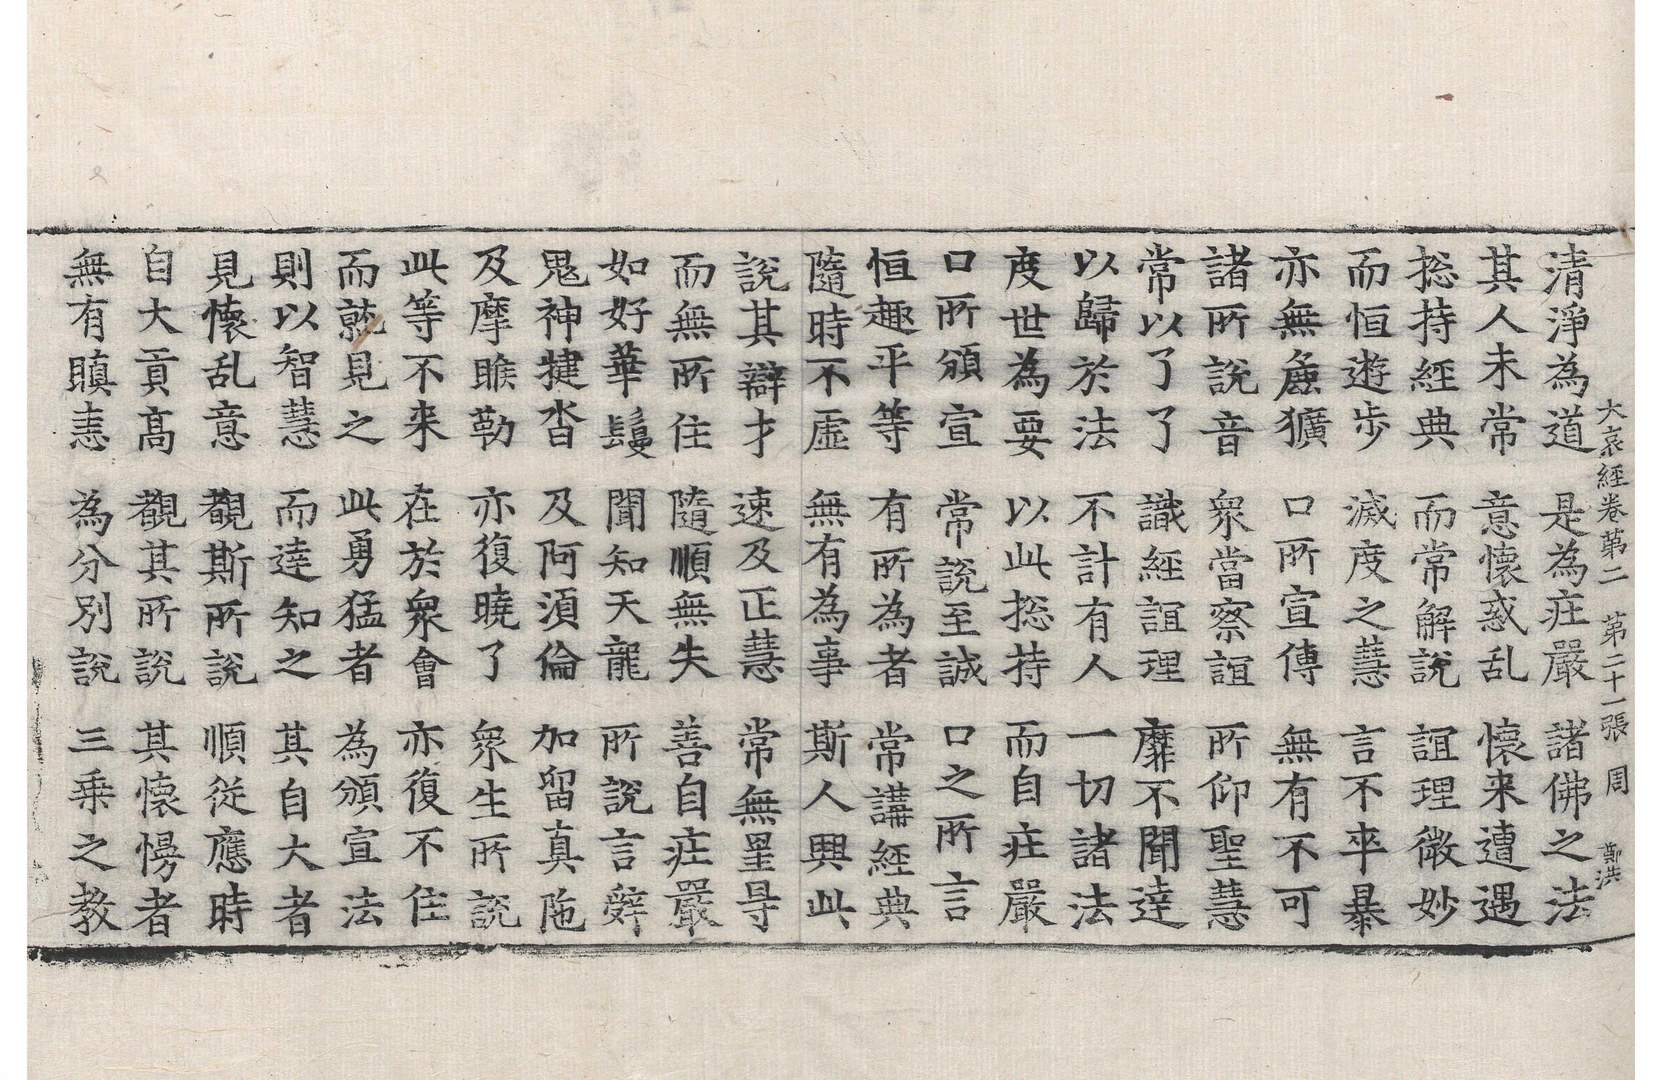 大哀經卷第二 第二十一張 周 鄭洪
清淨為道 是為庄嚴 諸佛之法
其人未常 意懷惑乱 懷来遭遇
捴持經典 而常解說 誼理微妙
而恒遊步 滅度之慧 言不卒暴
亦無麁獷 口所宣傳 無有不可
諸所說音 衆當察誼 所仰聖慧
常以了了 識經誼理 靡不聞達
以歸於法 不計有人 一切諸法
度世為要 以此捴持 而自庄嚴
口所頒宣 常說至誠 口之所言
恒趣平等 有所為者 常講經典
隨時不虛 無有為事 斯人興此
說其辯才 速及正慧 常無罣㝵
而無所住 隨順無失 善自庄嚴
如好華鬘 聞知天龍 所說言辝
鬼神揵沓 及阿湏倫 加留真陁
及摩睺勒 亦復曉了 衆生所說
此等不来 在於衆會 亦復不住
而就見之 此勇猛者 為頒宣法
則以智慧 而達知之 其自大者
見懷乱意 觀斯所說 順従應時
自大貢高 觀其所說 其懷慢者
無有瞋恚 為分別說 三乘之教